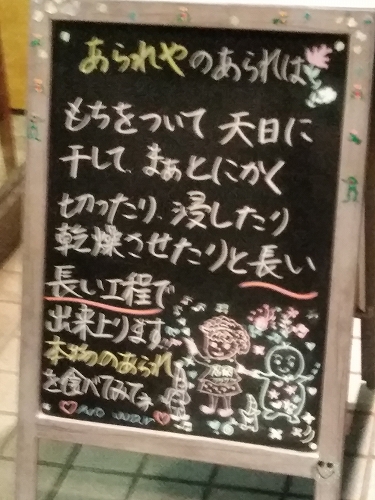 あられやのあられは
もちをついて 天日に
干して、まぁとにかく
切ったり、浸したり
乾燥させたりと長い
長い工程で
出来上ります。
本物のあられ
を食べてみてネ
NO WAR